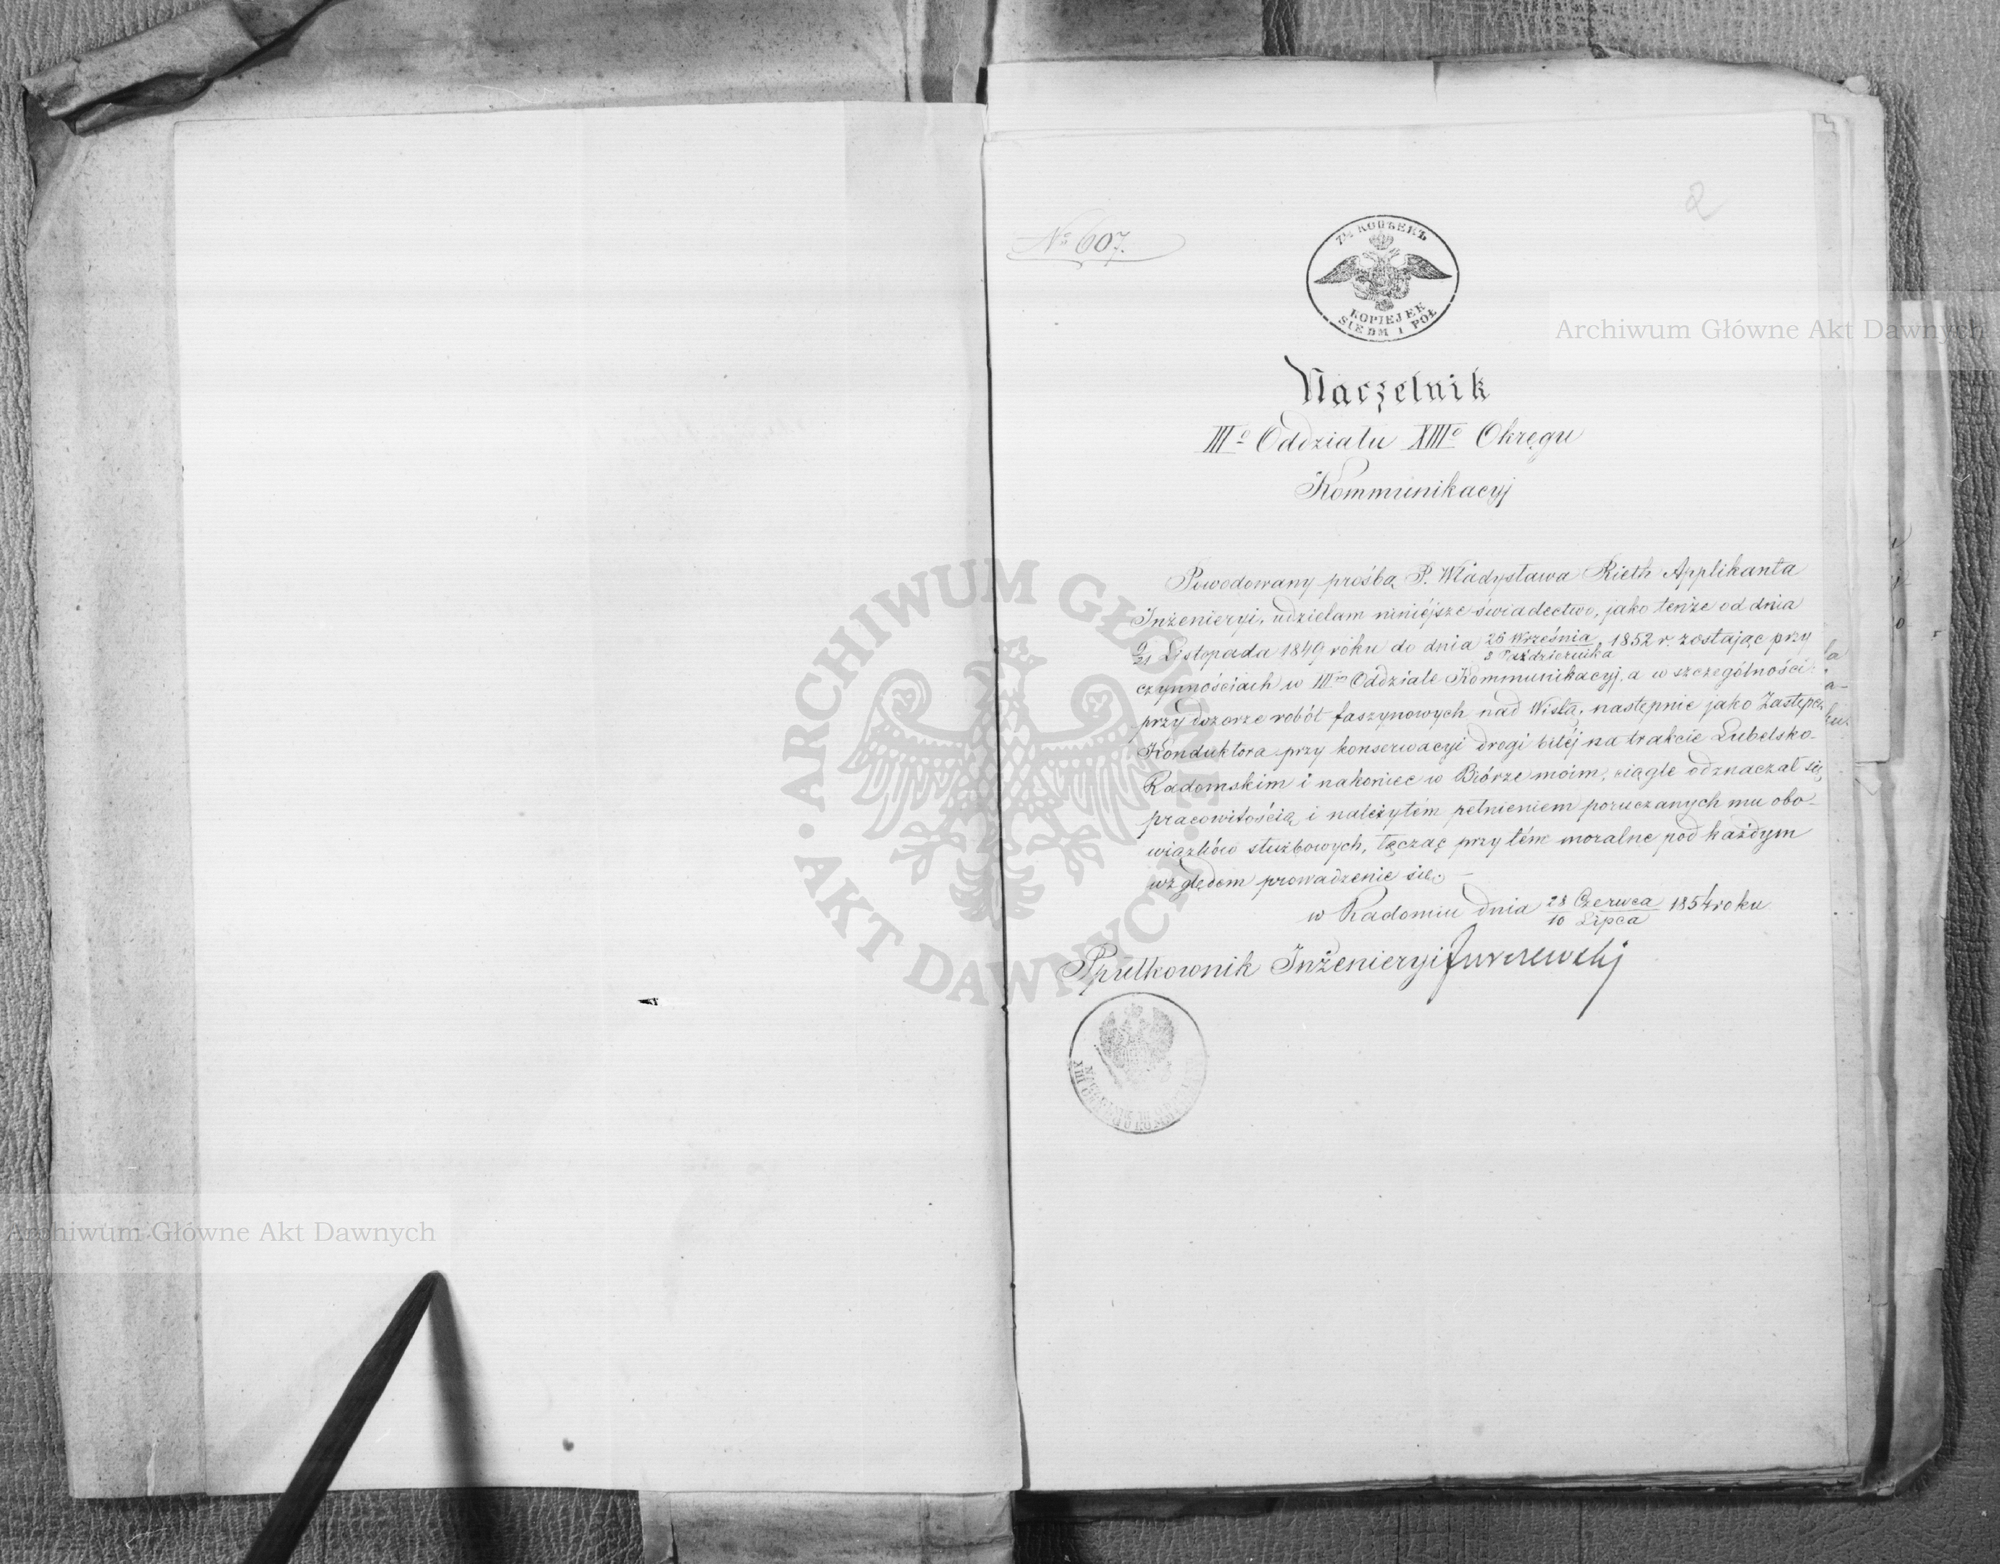 2
№ 607.
7½ КОПѢЕКЪ
KOPIEJEK
SIEDM I PÓŁ
Archiwum Główne Akt Dawnych
Naczelnik
IIIo Oddziału XIIIo Okręgu
Kommunikacyj
Powodowany prośbą P. Władysława Rieth Applikanta
Inżenieryi, udzielam niniéjsze świadectwo, jako tenże od dnia
9/21 Listopada 1849 roku do dnia 26 Września/8 Października 1852 r. zostając przy
czynnościach w IIIm Oddziale Kommunikacyj, a w szczególności:
przy dozorze robót faszynowych nad Wisłą, następnie jako Zastępca
Konduktora przy konserwacyi drogi bitéj na trakcie Lubelsko-
Radomskim i nakoniec w Biórze moim, ciągle odznaczał się
pracowitością i należytém pełnieniem poruczanych mu obo-
wiązków służbowych, łącząc przy tém moralne pod każdym
względem prowadzenie się. —
w Radomiu dnia 28 Czerwca/10 Lipca 1854 roku
Ppułkownik Inżenieryi
ARCHIWUM GŁÓWNE · AKT DAWNYCH ·
Archiwum Główne Akt Dawnych